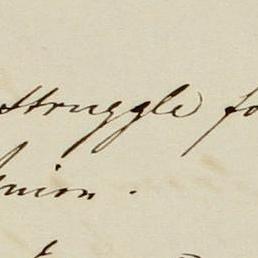 struggle fo
nion.